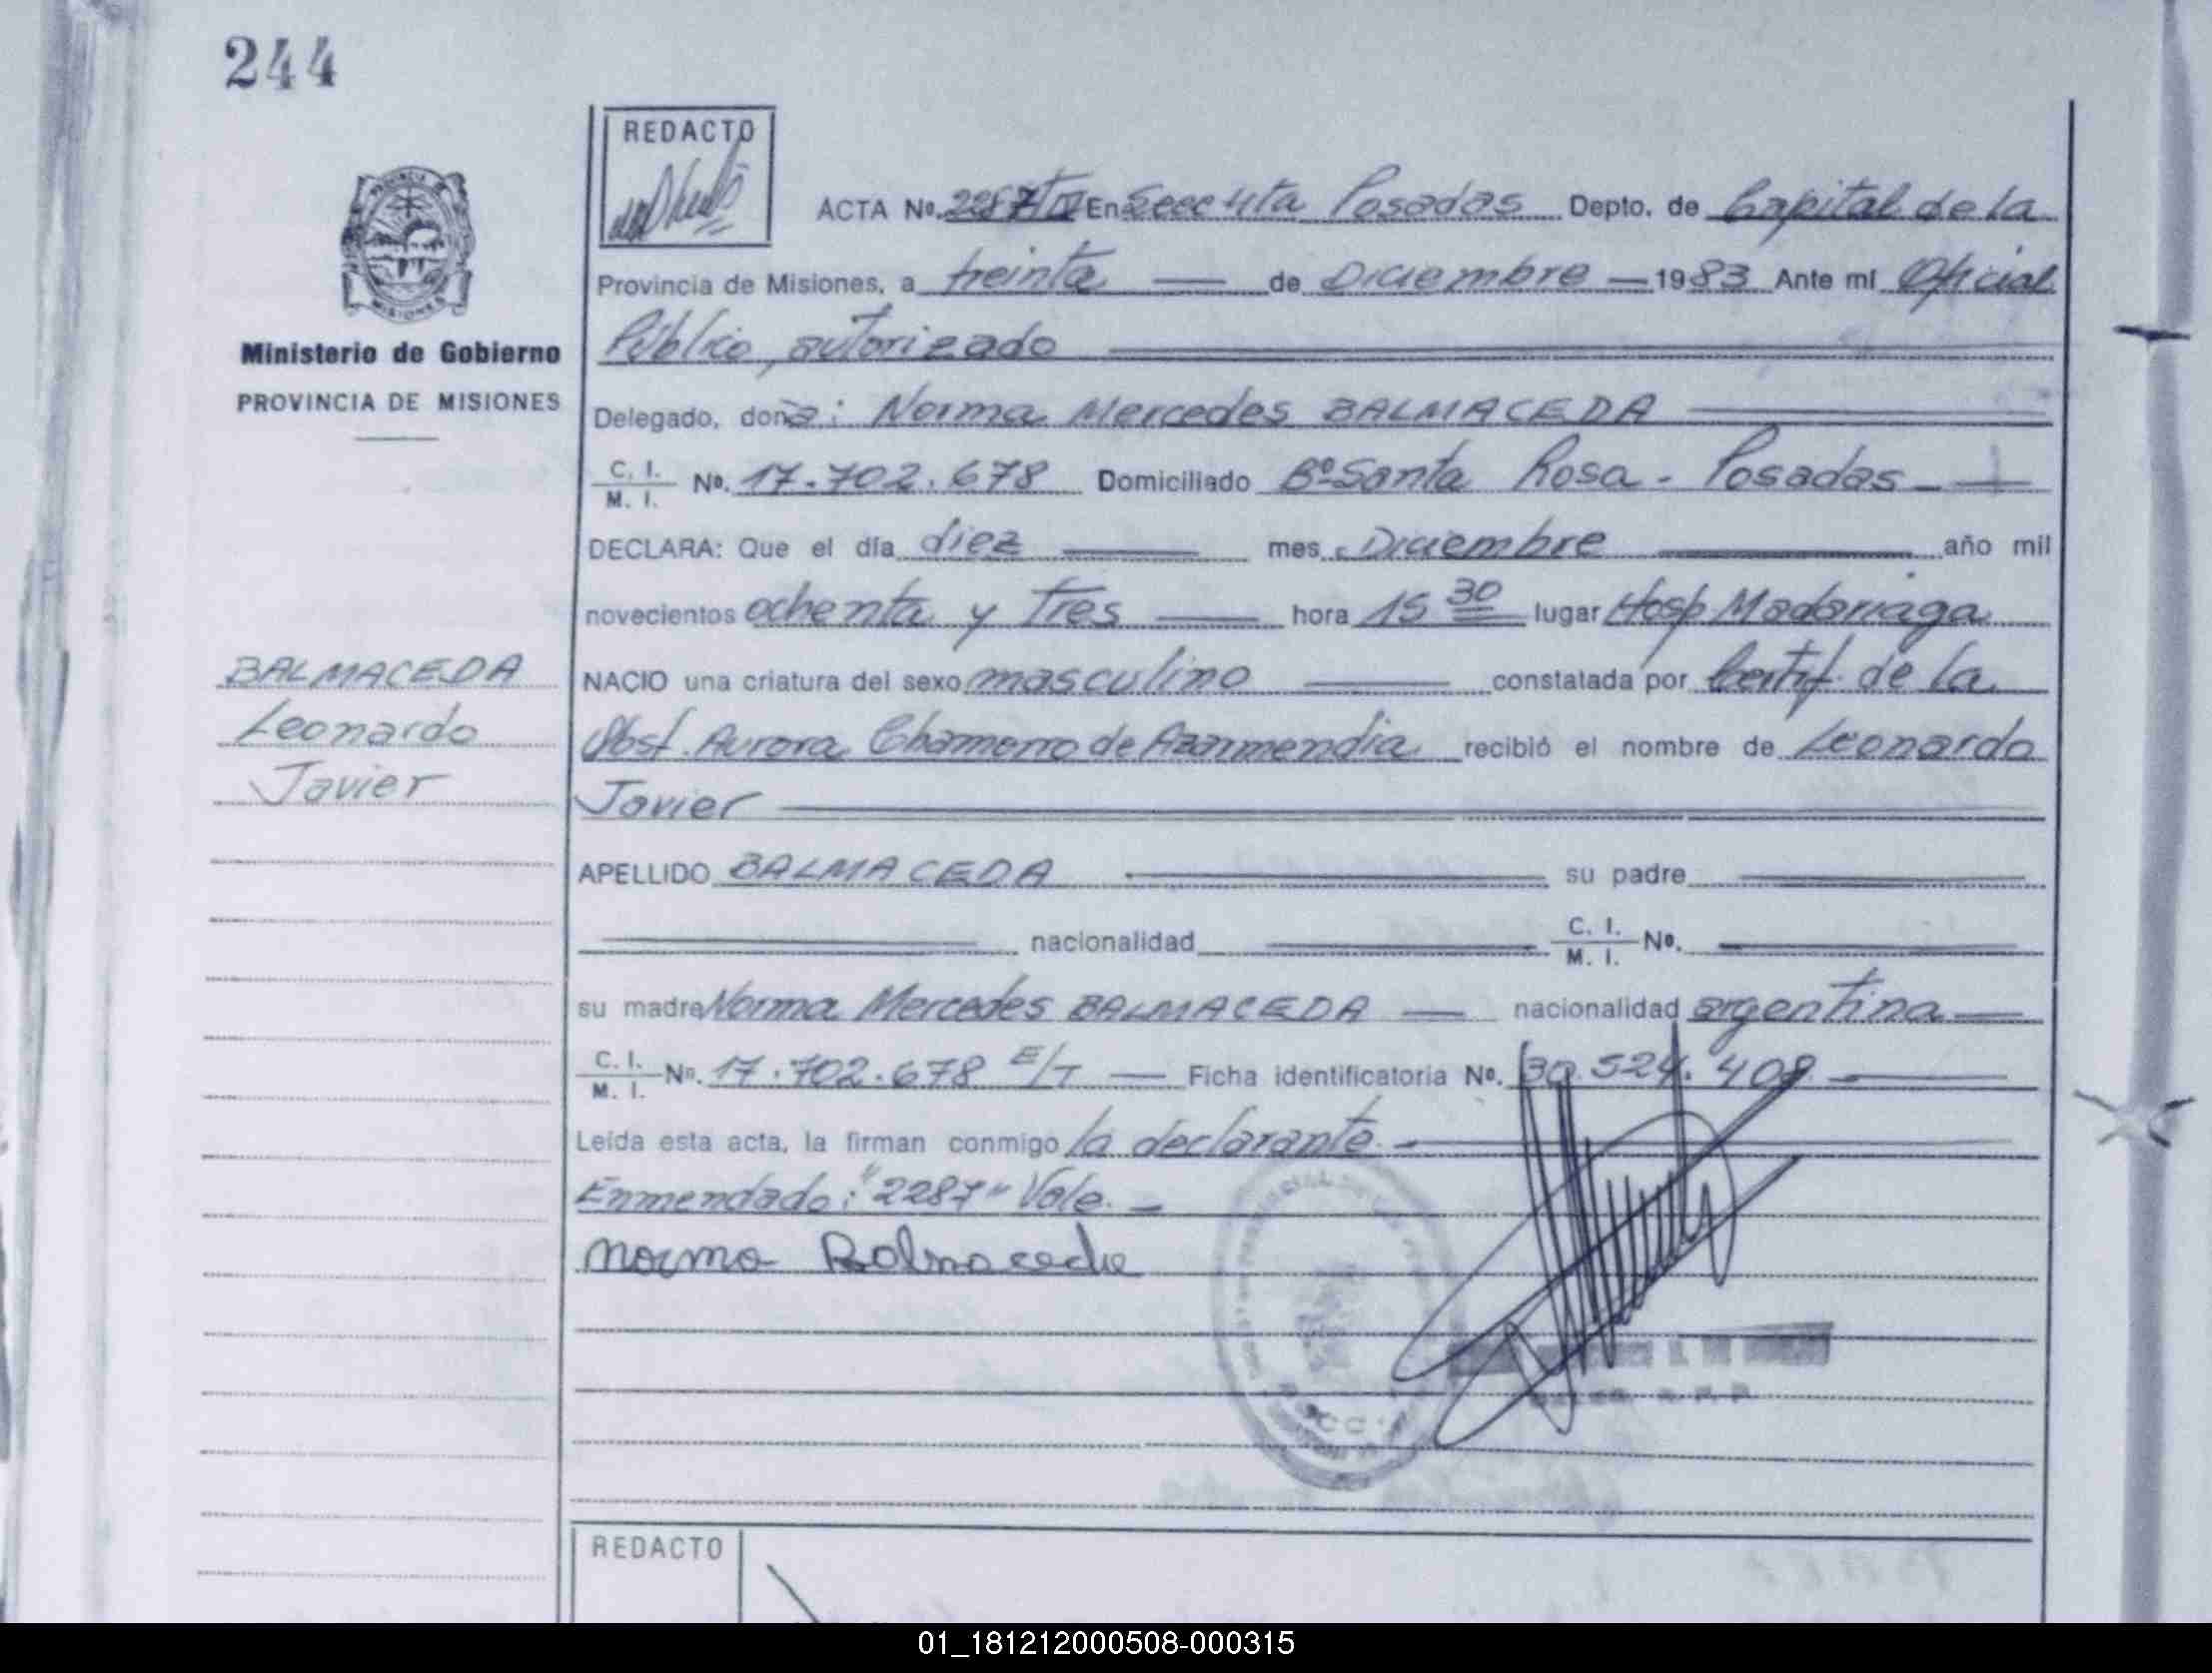 244
REDACTO
ACTA Nº. 2287 En Secc 4ta Posadas Depto. de Capital de la
Provincia de Misiones, a treinta — de Diciembre — 1983 Ante mi Oficial
Ministerio de Gobierno
Público, autorizado
PROVINCIA DE MISIONES
Delegado, doña: Norma Mercedes BALMACEDA
C. I.
M. I.
Nº. 17.702.678 Domiciliado Bº Santa Rosa - Posadas -
DECLARA: Que el día diez — mes Diciembre — año mil
novecientos ochenta y tres — hora 15 30 lugar Hosp Madariaga
BALMACEDA
NACIO una criatura del sexo masculino — constatada por Certif. de la
Leonardo
Obst. Aurora Chamorro de Azarmendia recibió el nombre de Leonardo
Javier
Javier
APELLIDO BALMACEDA — su padre
nacionalidad — C. I.
M. I. Nº.
su madre Norma Mercedes BALMACEDA — nacionalidad argentina —
C. I.
M. I. Nº. 17.702.678 E/T — Ficha identificatoria Nº. 30.524.408 —
Leída esta acta, la firman conmigo la declarante. -
Enmendado: "2287" Vale. -
Norma Balmaceda
REDACTO
01_181212000508-000315